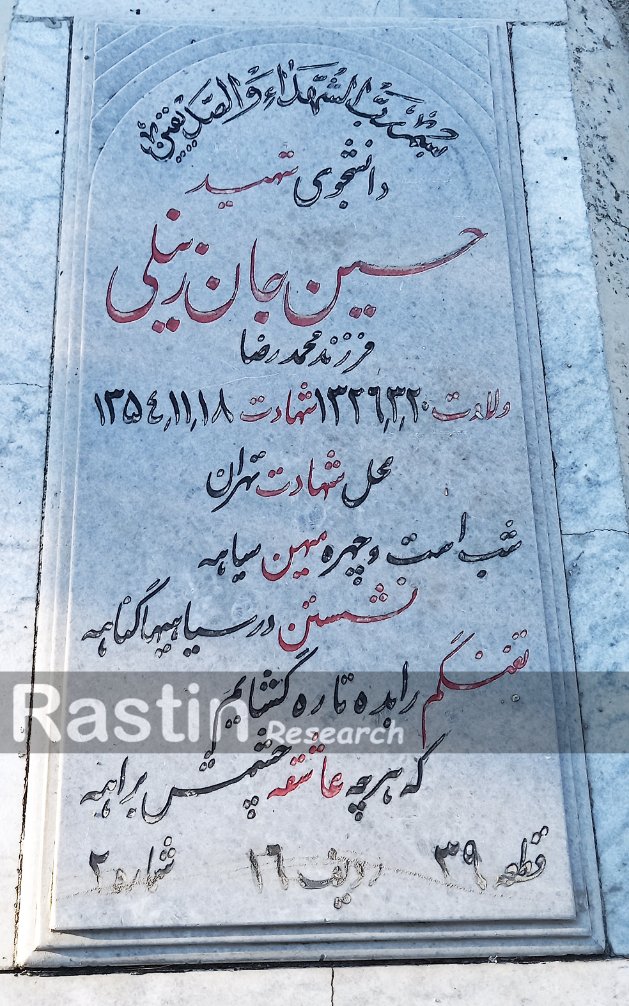 بسم رب الشهداء والصدیقین
دانشجوی شهید
حسین جان زینلی
فرزند محمدرضا
ولادت ۱۳۲۶٫۳٫۲۰ شهادت ۱۳۵۴٫۱۱٫۱۸
محل شهادت تهران
شب است و چهره میهن سیاهه
نشستن در سیاهیها گناهه
تفنگم را بده تا ره گشایم
Rastin Research
که هر چه عاشقه چشمش براهه
قطعه ۳۹ ردیف ۱۶ شماره ۲